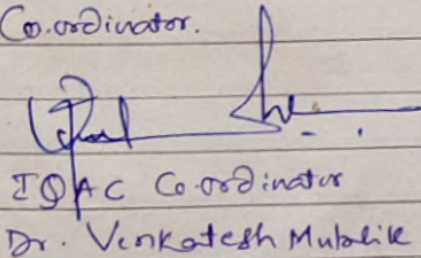 Co.ordinator.
IQAC Co-ordinator
Dr. Venkatesh Mutalik